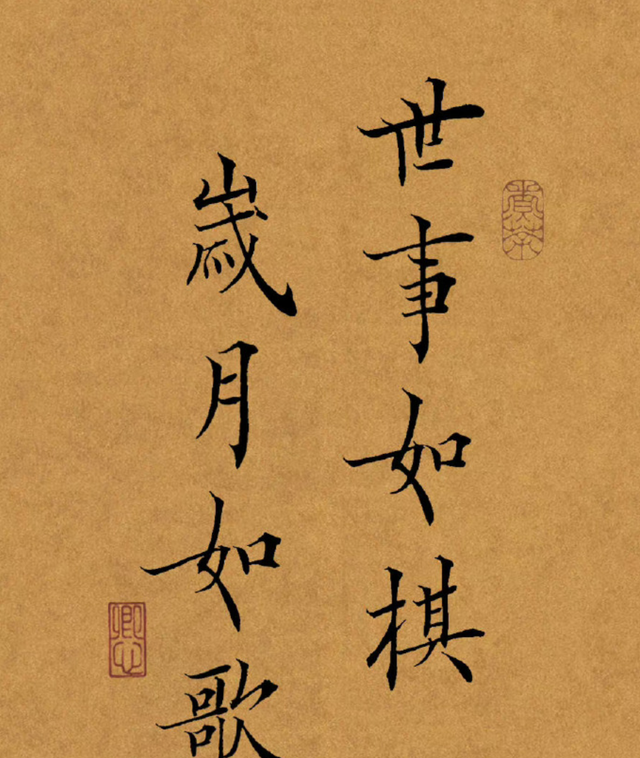 世事如棋
歲月如歌